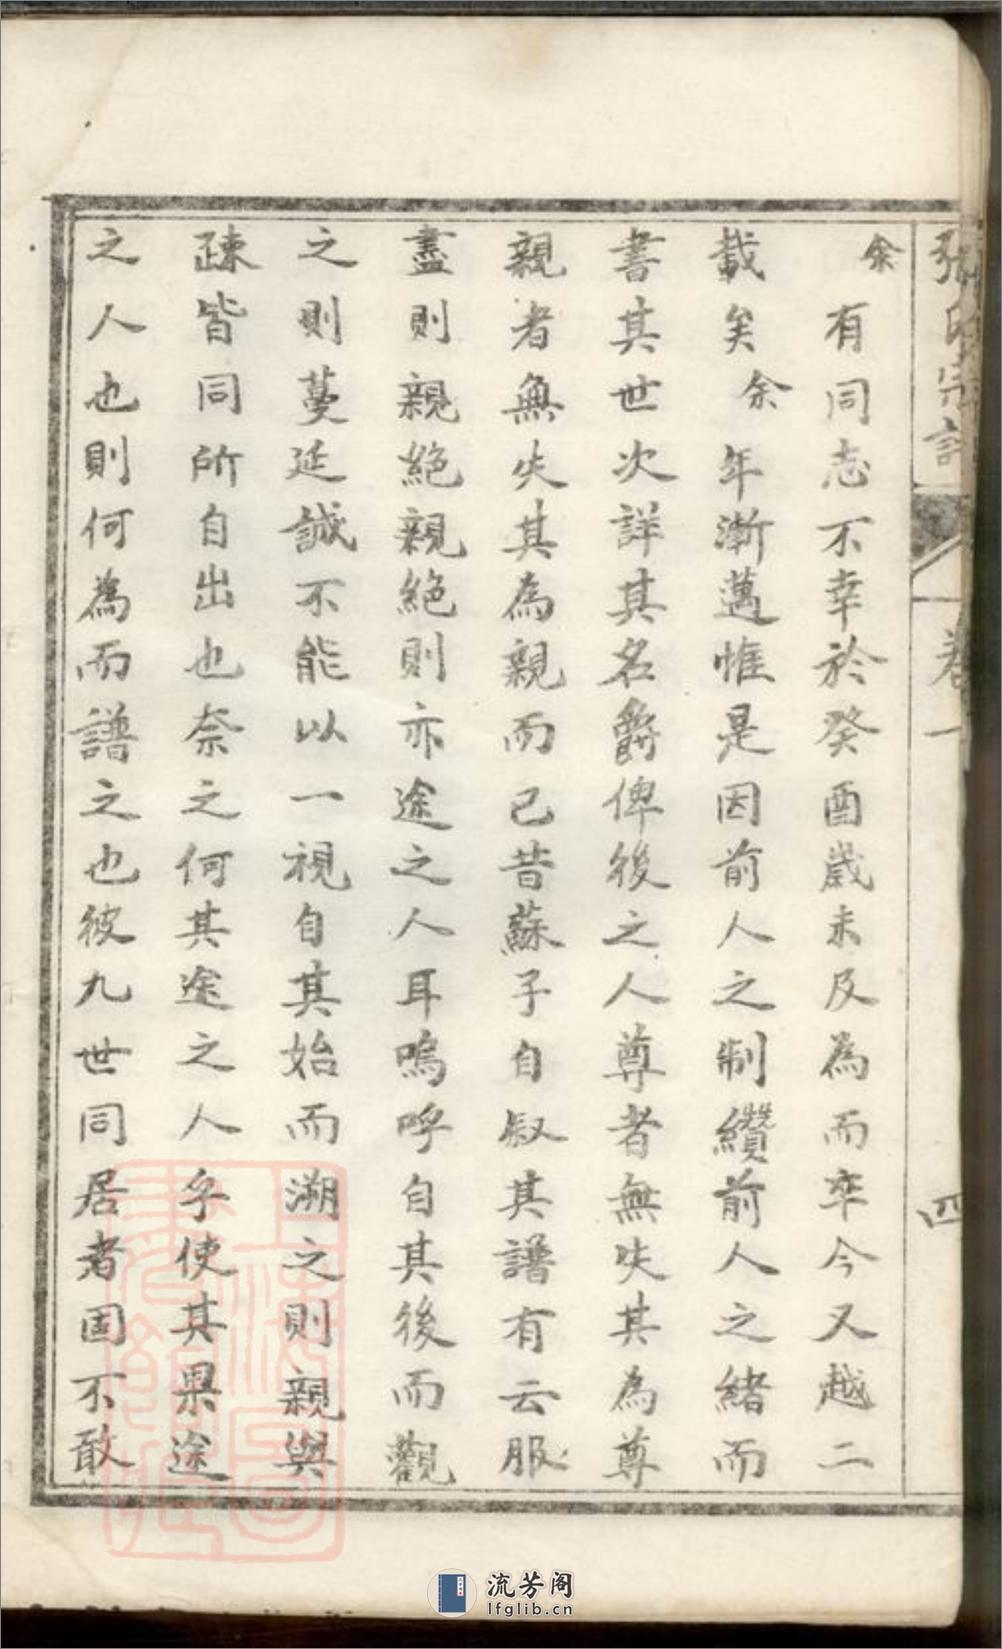 張氏宗譜 卷一 四
余有同志不幸於癸酉歲未及為而卒今又越二
載矣余年漸邁惟是因前人之制纘前人之緒而
書其世次詳其名爵俾後之人尊者無失其為尊
親者無失其為親而已昔蘇子自叙其譜有云服
盡則親絕親絕則亦途之人耳嗚呼自其後而觀
之則蔓延誠不能以一視自其始而溯之則親與
疎皆同所自出也奈之何其途之人乎使其果途
之人也則何為而譜之也彼九世同居者固不敢
流芳阁
lfglib.cn